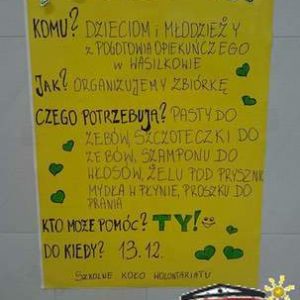 KOMU? DZIECIOM i MŁODZIEŻY
z POGOTOWIA OPIEKUŃCZEGO
w WASILKOWIE
JAK? ORGANIZUJEMY ZBIÓRKĘ
CZEGO POTRZEBUJĄ? PASTY DO
ZĘBÓW, SZCZOTECZKI DO
ZĘBÓW, SZAMPONU DO
WŁOSÓW, ŻELU POD PRYSZNIC
MYDŁA W PŁYNIE, PROSZKU DO
PRANIA
KTO MOŻE POMÓC? TY!
DO KIEDY? 13.12.
SZKOLNE KOŁO WOLONTARIATU